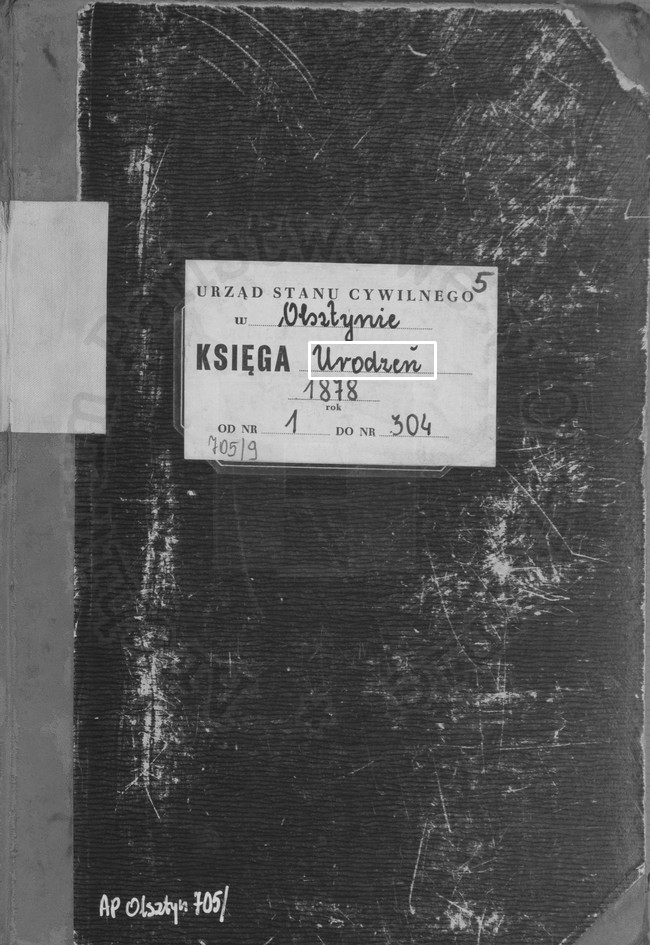 5
URZĄD STANU CYWILNEGO
w Olsztynie
KSIĘGA Urodzeń
1878
rok
OD NR 1 DO NR 304
705/9
AP Olsztyn 705/